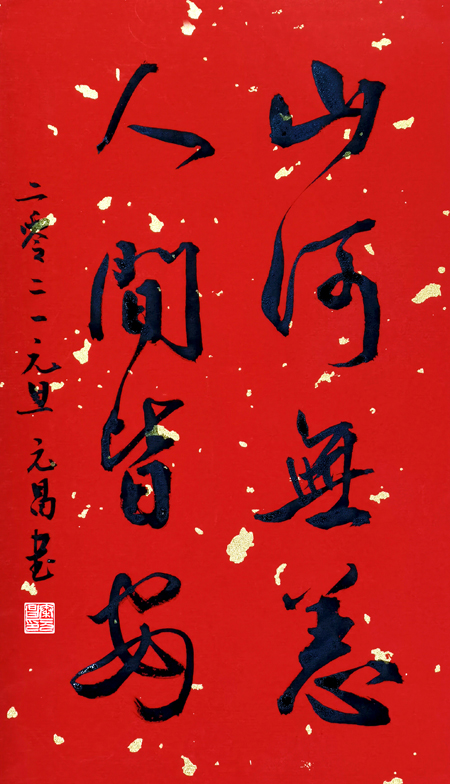 山河無恙
人間皆安
二零二一元旦 元昌書